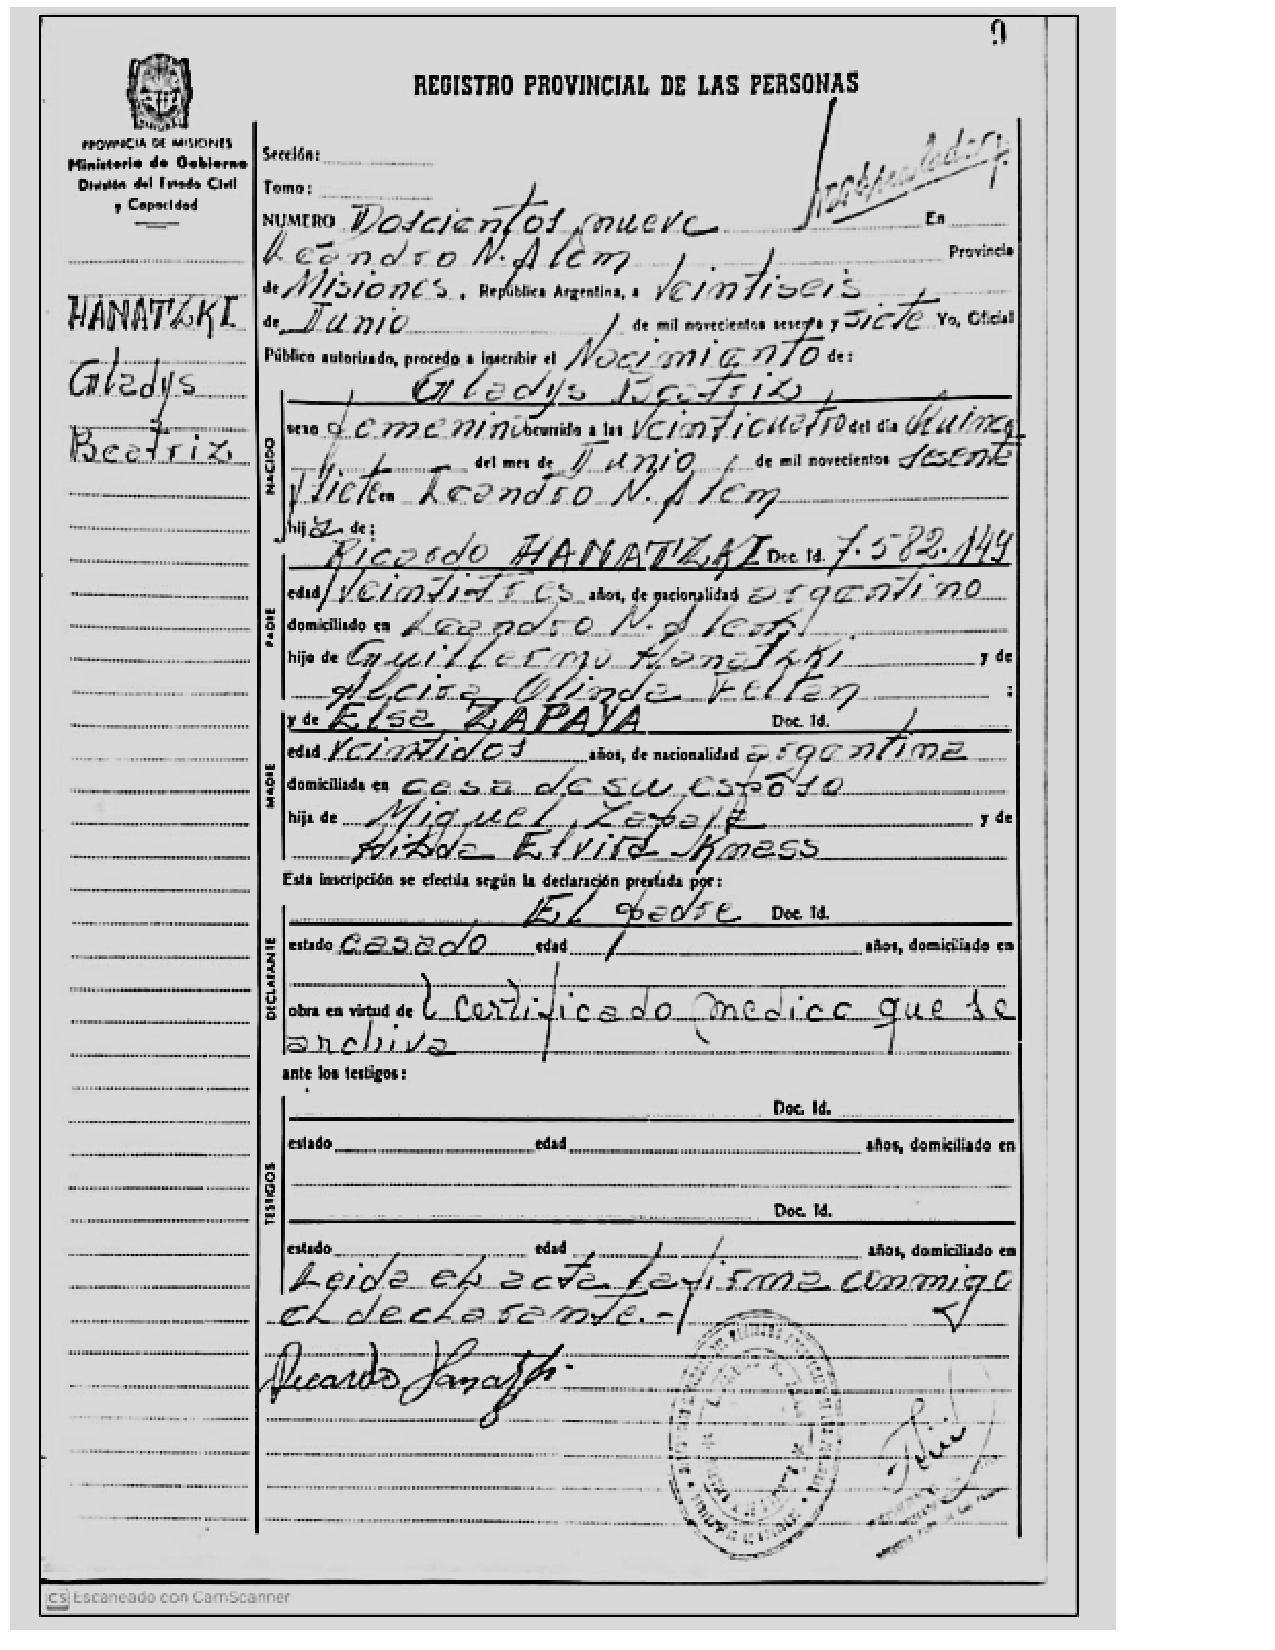 REGISTRO PROVINCIAL DE LAS PERSONAS
PROVINCIA DE MISIONES
Ministerio de Gobierno
División del Estado Civil
y Capacidad
HANATZKI
Gladys
Beatriz
Sección:
Tomo:
NUMERO Doscientos nueve En
Leandro N. Alem Provincia
de Misiones, República Argentina, a Veintiseis
de Junio de mil novecientos sesenta y siete Yo, Oficial
Público autorizado, procedo a inscribir el Nacimiento de:
Gladys Beatriz
NACIDO
sexo femenino ocurrido a las veinticuatro del día Quince
del mes de Junio de mil novecientos sesenta
siete en Leandro N. Alem
hija de:
PADRE
Ricardo HANATZKI Doc. Id. 7.582.149
edad veintitres años, de nacionalidad argentino
domiciliado en Leandro N. Alem
hijo de Guillermo Hanatzki y de
Alcira Olinda Feltan ;
MADRE
y de Elsa ZAPAYA Doc. Id.
edad veintidos años, de nacionalidad argentina
domiciliada en casa de su esposo
hija de Miguel y de
Elvira
Esta inscripción se efectúa según la declaración prestada por:
DECLARANTE
El padre Doc. Id.
estado casado edad años, domiciliado en
obra en virtud de l certificado medico que se
archiva
ante los testigos:
TESTIGOS
Doc. Id.
estado edad años, domiciliado en
Doc. Id.
estado edad años, domiciliado en
Leida el acta la firma conmigo
el declarante.-
Ricardo Hanatzki
CS Escaneado con CamScanner